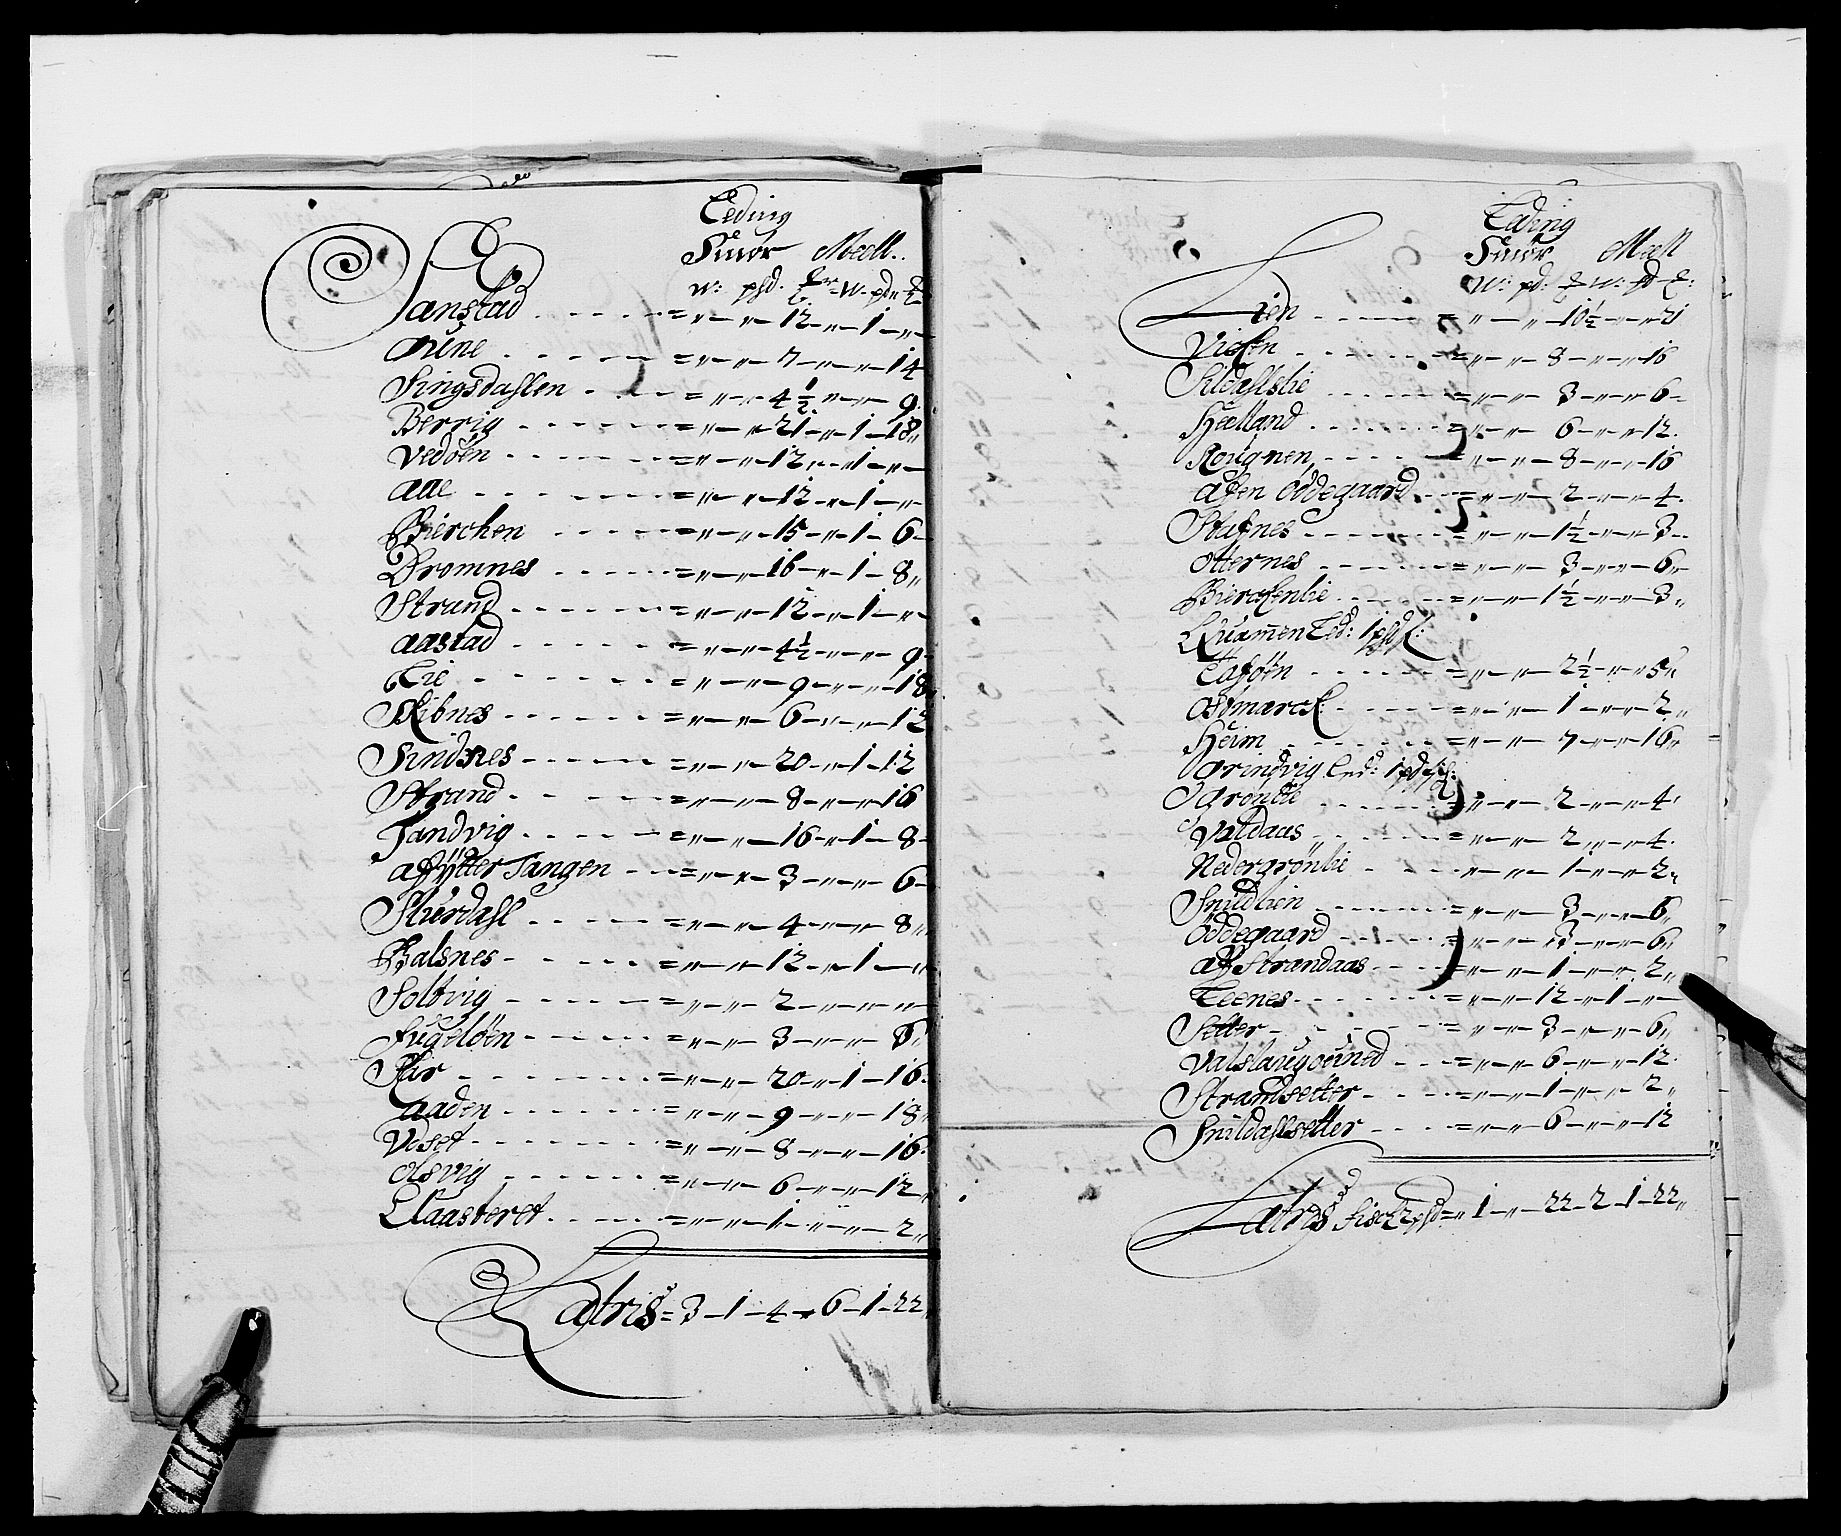 Leding
Smör Meell..
W: psd. W. pd
Sanstad . - - - - - = „ — „ — 12 — „ — 1 — „ —
Aune . - - - - - = „ — „ — 7 — „ — „ — 14
Singsdahlen . - - - = „ — „ — 4½ — „ — „ — 9.
Berrig - - - - - = „ — „ — 21 — „ — 1 — 18„
Vedöen - - - - - = „ — „ — 12 — „ — 1 — „ —
Aae - - - - - = „ — „ — 12 — „ — 1 — „
Bierchen - - - - - = „ — „ — 15 — „ — 1 — 6 —
Dromnes - - - - - = „ — „ — 16 — „ — 1 — 8„
Strand - - - - - = „ — „ — 12 — „ — 1 — „ —
Aastad - - - - - = „ — „ — 4½ — „ — „ — 9 —
Lie - - - - - = „ — „ — 9 — „ — „ — 18„
Skibnes - - - - - = „ — „ — 6 — „ — „ — 12
Sindnes - - - - - = „ — „ — 20 — „ — 1 — 12
Strand - - - - = „ — „ — 8 — „ — „ — 16
Tandvig - - - - - = „ — „ — 16 — „ — 1 — 8 —
Aff ÿtter Tangen - - - = „ — „ — 3 — „ — „ — 6 —
Sturdahl - - - - - = „ — „ — 4 — „ — „ — 8„
Balsnes - - - - - = „ — „ — 12 — „ — 1 — „
Solbvig - - - - - = „ — „ — 2 — „ — „ — „
Fugelöen - - - - - = „ — „ — 3 — „ — „ — 6„
Kir - - - - - = „ — „ — 20 — „ — 1 — 16.
Aaden - - - - - = „ — „ — 9 — „ — „ — 18„
Veset - - - - - = „ — „ — 8 — „ — „ — 16.
Olsvig - - - - - = „ — „ — 6 — „ — „ — 12„
Claasteret - - - - = „ — „ — 1 — „ — „ — 2„
Latris = 3 — 1 — 4 — 6 — 1 — 22„
Leding
Smör Meell
W: pd: W: pd
Lien - - - - - = „ — „ — 10½ — „ — „ — 21
Vielen - - - - - = „ — „ — 8 — „ — „ — 16
Sildahlslie - - - - = „ — „ — 3 — „ — „ — 6 —
Hælland - - - - - = „ — „ — 6 — „ — „ — 12.
Rougnen - - - - = „ — „ — 8 — „ — „ — 16
Aken Ödegaard - - = „ — „ — 2 — „ — „ — 4.
Stafnes - - - - - = „ — „ — 1½ — „ — „ — 3 —
Otternes - - - - - = „ — „ — 3 — „ — „ — 6 —
Bierckenlie - - - - = „ — „ — 1½ — „ — „ — 3„
Quamen Led: 1 psd
Taföen - - - - - = „ — „ — 2½ — „ — „ — 5„
Asmarck - - - - - = „ — „ — 1 — „ — „ — 2„
Heim - - - - - = „ — „ — 7 — „ — „ — 16„
Grindvig Led: 1 pd
Grönlie - - - - = „ — „ — 2 — „ — „ — 4.
Valdaas - - - - - = „ — „ — 2 — „ — „ — 4.
Nedergrönlie - - - - „ — „ — 1 — „ — „ — 2„
Snildlien - - - - - = „ — „ — 3 — „ — „ — 6„
Ödegaard - - - - = „ — „ — 3 — „ — „ — 6„
Aff Strandaas - - - = „ — „ — 1 — „ — „ — 2„
Leenes - - - - - = „ — „ — 12 — „ — 1 — „ —
Setter - - - - - = „ — „ — 3 — „ — „ — 6„
Valslaugouned - - - = „ — „ — 6 — „ — „ — 12.
Strandsetter - - - - = „ — „ — 1 — „ — „ — 2„
Snildahlsetter - - - - = „ — „ — 6 — „ — „ — 12
Latris fisch 2 psd = „ 1 — „ — 22 — 2 — 1 — 22„